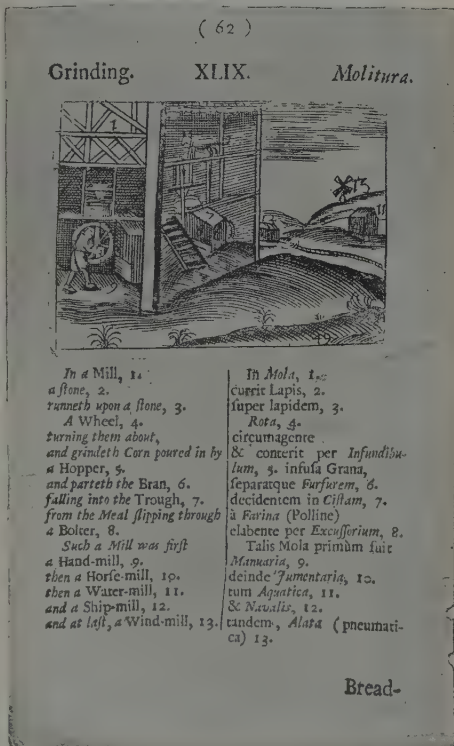 ( 62 )
Grinding. XLIX. Molitura.
In a Mill, 1.
a ſtone, 2.
runneth upon a ſtone, 3.
A Wheel, 4.
turning them about,
and grindeth Corn poured in by
a Hopper, 5.
and parteth the Bran, 6.
falling into the Trough, 7.
from the Meal ſlipping through
a Bolter, 8.
Such a Mill was firſt
a Hand-mill, 9.
then a Horſe-mill, 10.
then a Water-mill, 11.
and a Ship-mill, 12.
and at laſt, a Wind-mill, 13.
In Mola, 1.
currit Lapis, 2.
ſuper lapidem, 3.
Rota, 4.
circumagente
& conterit per Infundibu-
lum, 5. infuſa Grana,
ſeparatque Furfurem, 6.
decidentem in Ciſtam, 7.
à Farina (Polline)
elabente per Excuſſorium, 8.
Talis Mola primùm fuit
Manuaria, 9.
deinde Jumentaria, 10.
tum Aquatica, 11.
& Navalis, 12.
tandem, Alata (pneumati-
ca) 13.
Bread-